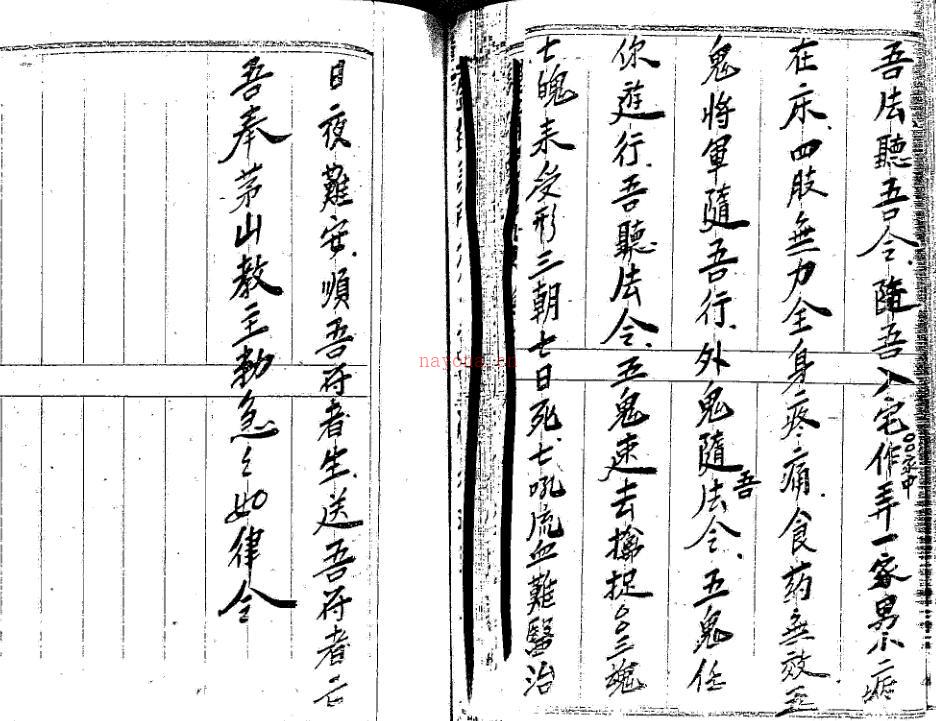 吾法聽吾令、隨吾入宅作弄一家男小疾
〇〇家中
在床、四肢無力全身疼痛、食药無效五
鬼將軍隨吾行、外鬼隨法令、五鬼任
吾
你遊行、吾聽法令、五鬼速去擒捉〇〇三魂
七魄来受形三朝七日死、七吼流血難醫治
日夜難安、順吾符者生、送吾符者亡
吾奉茅山教主勅急〻如律令
nayona.cn